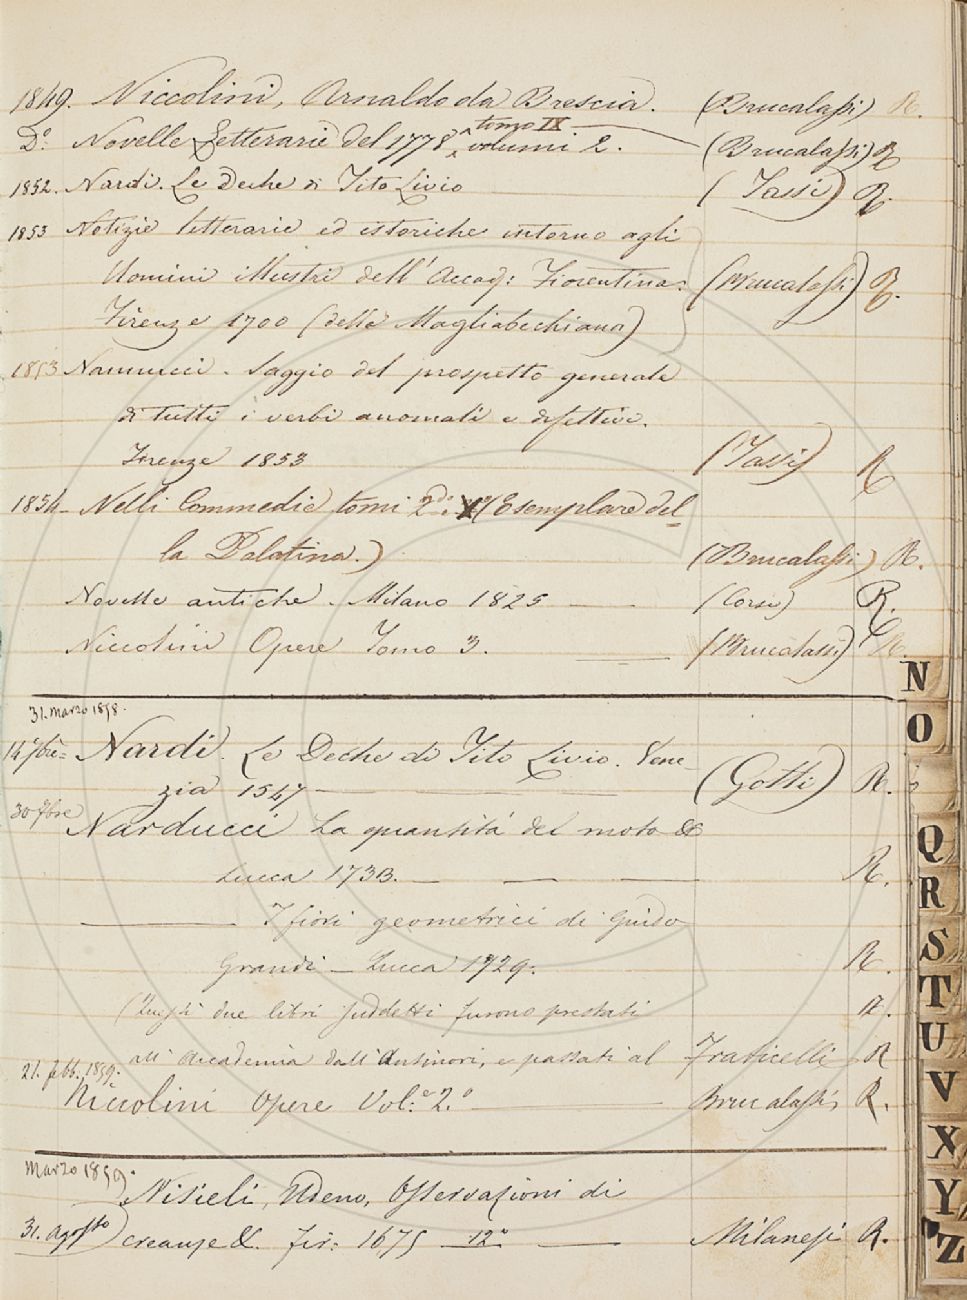 1849. Niccolini, Arnaldo da Brescia. (Brucalassi) R.
D.o Novelle Letterarie del 1778, tomo IX volumi 2. (Brucalassi) R
1852. Nardi. Le Deche di Tito Livio (Tassi) R.
1853 Notizie letterarie ed istoriche intorno agli
Uomini illustri dell' Accad: Fiorentina. (Brucalassi) R.
Firenze 1700 (della Magliabechiana)
1853 Nannucci. Saggio del prospetto generale
di tutti i verbi anomali e difettivi.
Firenze 1853 (Tassi) R
1854 Nelli Commedie tomi 2. (Esemplare del
la Palatina.) (Brucalassi) R.
Novelle antiche. Milano 1825 (Corsi) R.
Niccolini Opere Tomo 3. (Brucalassi) R.
31. marzo 1858.
14 Nardi. Le Deche di Tito Livio. Vene-
zia 1547 (Gotti) R.
30 Narducci La quantità del moto &
Lucca 173 R.
I fiori geometrici di Guido
Grandi - Lucca 1729. R.
(Questi due libri suddetti furono prestati R.
all' Accademia dall' Antinori, e passati al Fraticelli R
21. febb. 1859. Niccolini Opere Vol.e 2.o Brucalassi, R.
Marzo 1859.
Nisieli, Udeno, Osservazioni di
31. Agosto creanze &. Fir: 1675 12.o Milanesi R.
N
O
Q
R
S
T
U
V
X
Y
Z